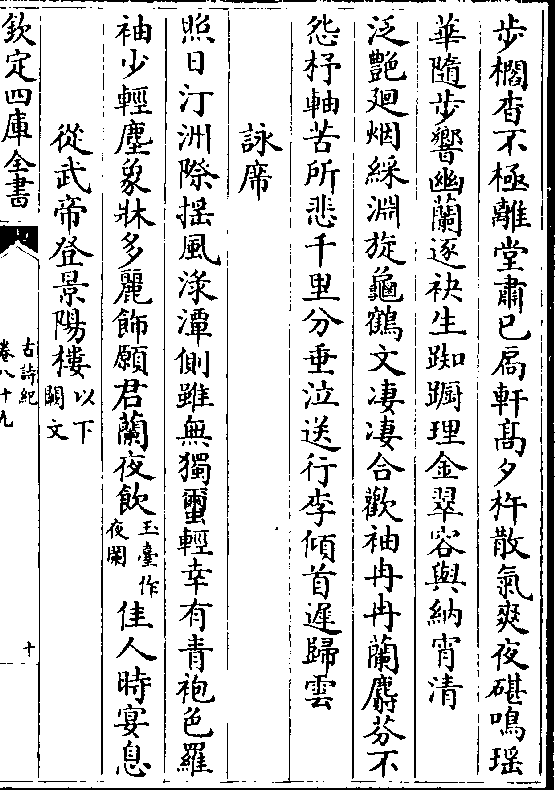 步櫩杳不極離堂肅已扃軒髙夕杵散氣爽夜碪鳴瑶
華隨步響幽蘭逐袂生踟蹰理金翠容與納宵清
泛艷廻烟綵淵旋龜鶴文凄凄合歡袖冉冉蘭麝芬不
怨杼軸苦所悲千里分垂泣送行李傾首遲歸雲
詠席
照日汀洲際揺風渌潭側雖無獨蠒輕幸有青袍色羅
袖少輕塵象牀多麗飾願君蘭夜飲玉臺作夜闌佳人時宴息
從武帝登景陽樓以下闕文
欽定四庫全書
古詩紀
卷八十九
十